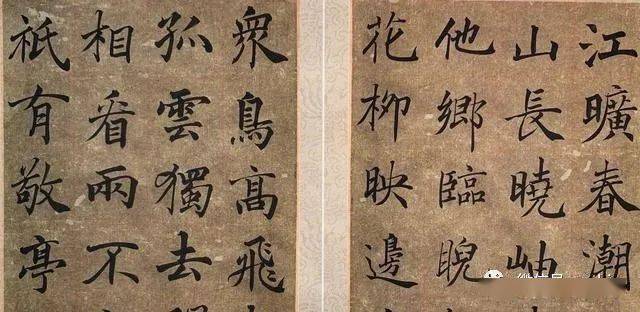 江曠春潮
山長曉岫
他鄉臨睨
花柳映邊
衆鳥髙飛
孤雲獨去
相看兩不
祇有敬亭